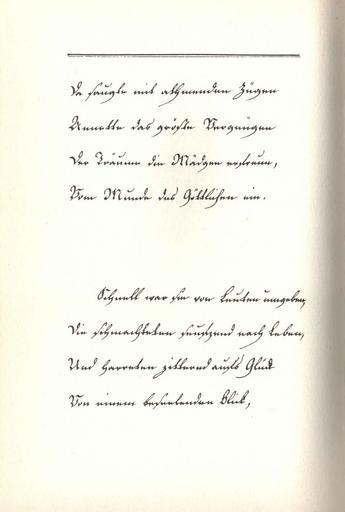 Da saugte mit athmenden Zügen
Annette das größte Vergnügen
Der Träume die Mädgen erfreun,
Vom Munde des Göttlichen ein.
Schnell war sie von Leuten umgeben,
Die schmachteten seufzend nach Leben,
Und harreten zitternd aufs Glück
Von einem beseelenden Blick,